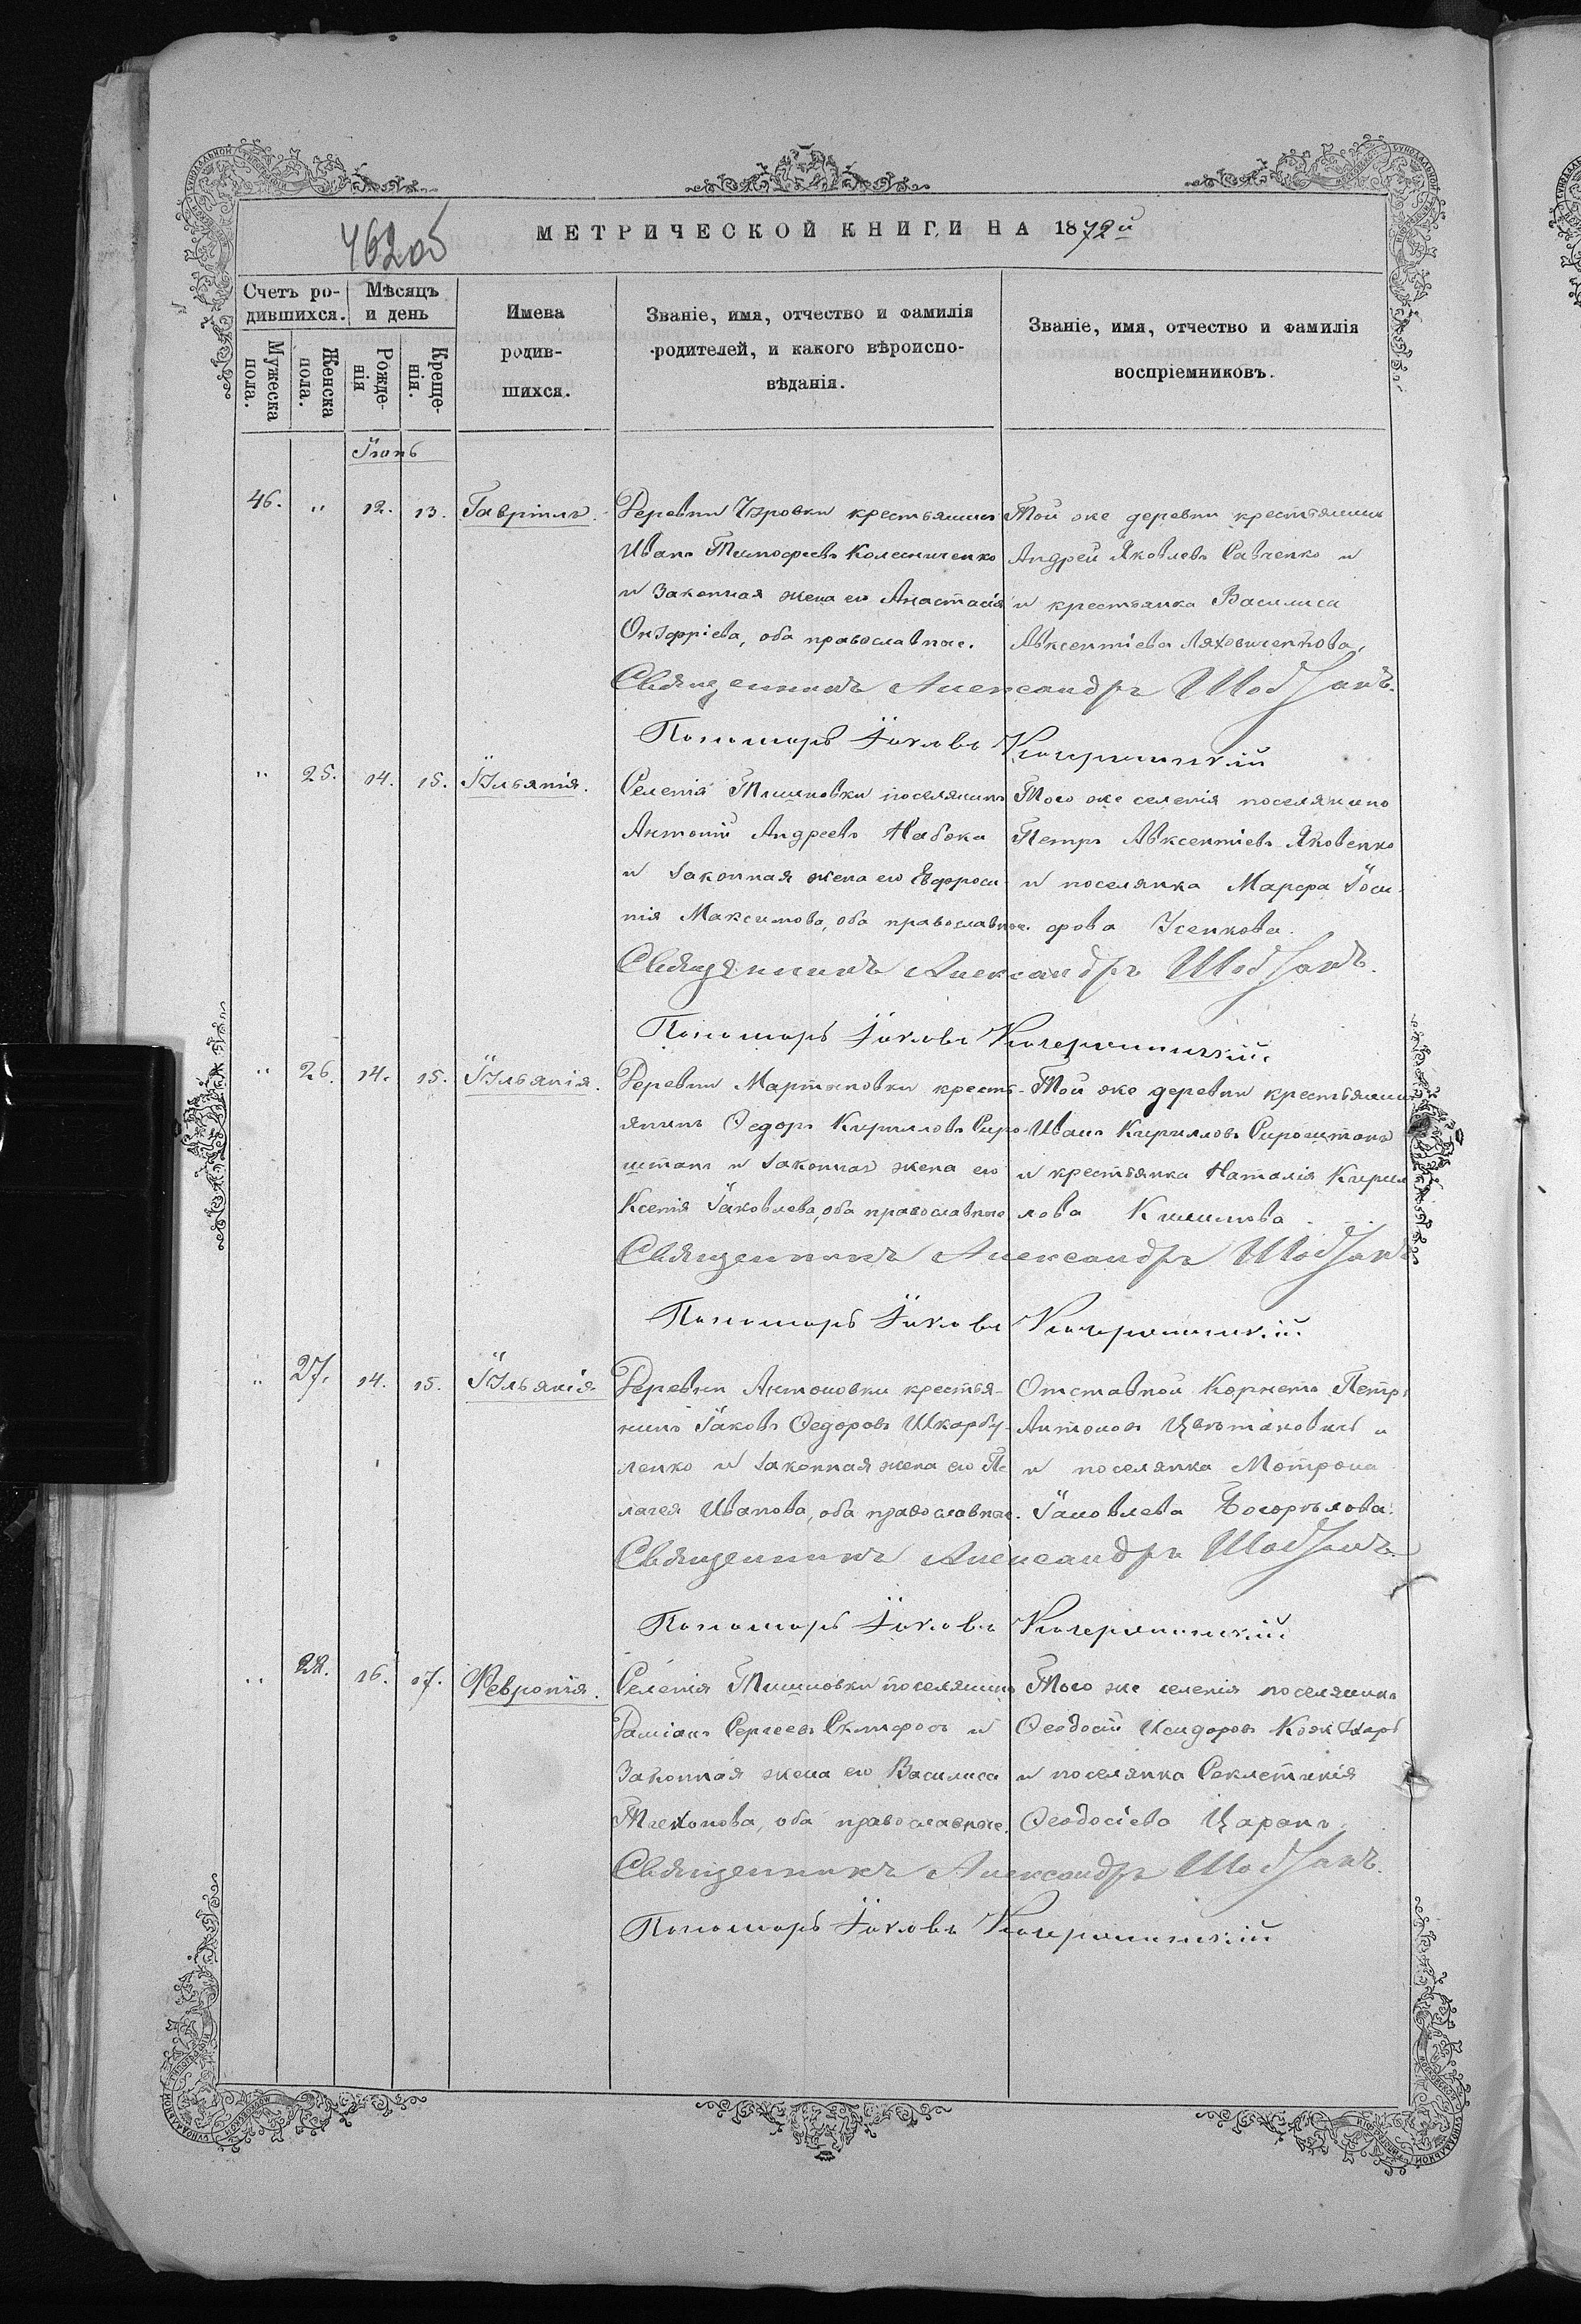 462об
МЕТРИЧЕСКОЙ КНИГИ НА 1872й
Счетъ ро-
дившихся.
Мѣсяцъ
и день
Мужеска
пола.
Женска
пола.
Рожде-
нія
Креще-
нія.
Имена
родив-
шихся.
Званіе, имя, отчество и фамилія
родителей, и какого вѣроиспо-
вѣданія.
Званіе, имя, отчество и фамилія
воспріемниковъ.
Іюнь
46. " 12. 13. Гавріилъ.
Деревни крестьянинъ
Иванъ Тимофеевъ Колесниченко
и законная жена его Анастасія
Онуфріева, оба православные.
Той же деревни крестьянинъ
Андрей Яковлевъ Савченко и
и крестьянка Василиса
Авксентіева
Священникъ Александръ
Пономарь Іаковъ
" 25. 14. 15. Іуліанія.
Селенія Тишковки поселянинъ
Антоній Андреевъ Набока
и законная жена его Ефроси-
нія Максимова, оба православные.
Того же селенія поселянинъ
Петръ Авксентіевъ Яковенко
и поселянка Марфа Іоси-
фова Усенкова.
Священникъ Александръ
Пономарь Іаковъ
" 26. 14. 15. Іуліанія.
Деревни Мартыновки кресть-
янинъ Ѳедоръ Кирилловъ Сиро-
штанъ и законная жена его
Ксенія Іаковлева, оба православные
Той же деревни крестьянинъ
Иванъ Кирилловъ Сироштанъ
и крестьянка Наталія Кирил
лова
Священникъ Александръ
Пономарь Іаковъ
" 27. 14. 15. Іуліанія
Деревни Антоновки крестья-
нинъ Іаковъ Ѳедоровъ Шкарбу-
ленко и законная жена его Пе
лагея Иванова, оба православные.
Отставной Корнетъ Петръ
Антоновъ и
и поселянка Мотрона
Іаковлева
Священникъ Александръ
Пономарь Іаковъ
" 28. 16. 17. Февронія.
Селенія Тишковки поселянинъ
Даміанъ Сергеевъ и
законная жена его Василиса
Тихонова, оба православные.
Того же селенія поселянинъ
Ѳеодосій Исидоровъ
и поселянка
Ѳеодосіева Царанъ.
Священникъ Александръ
Пономарь Іаковъ